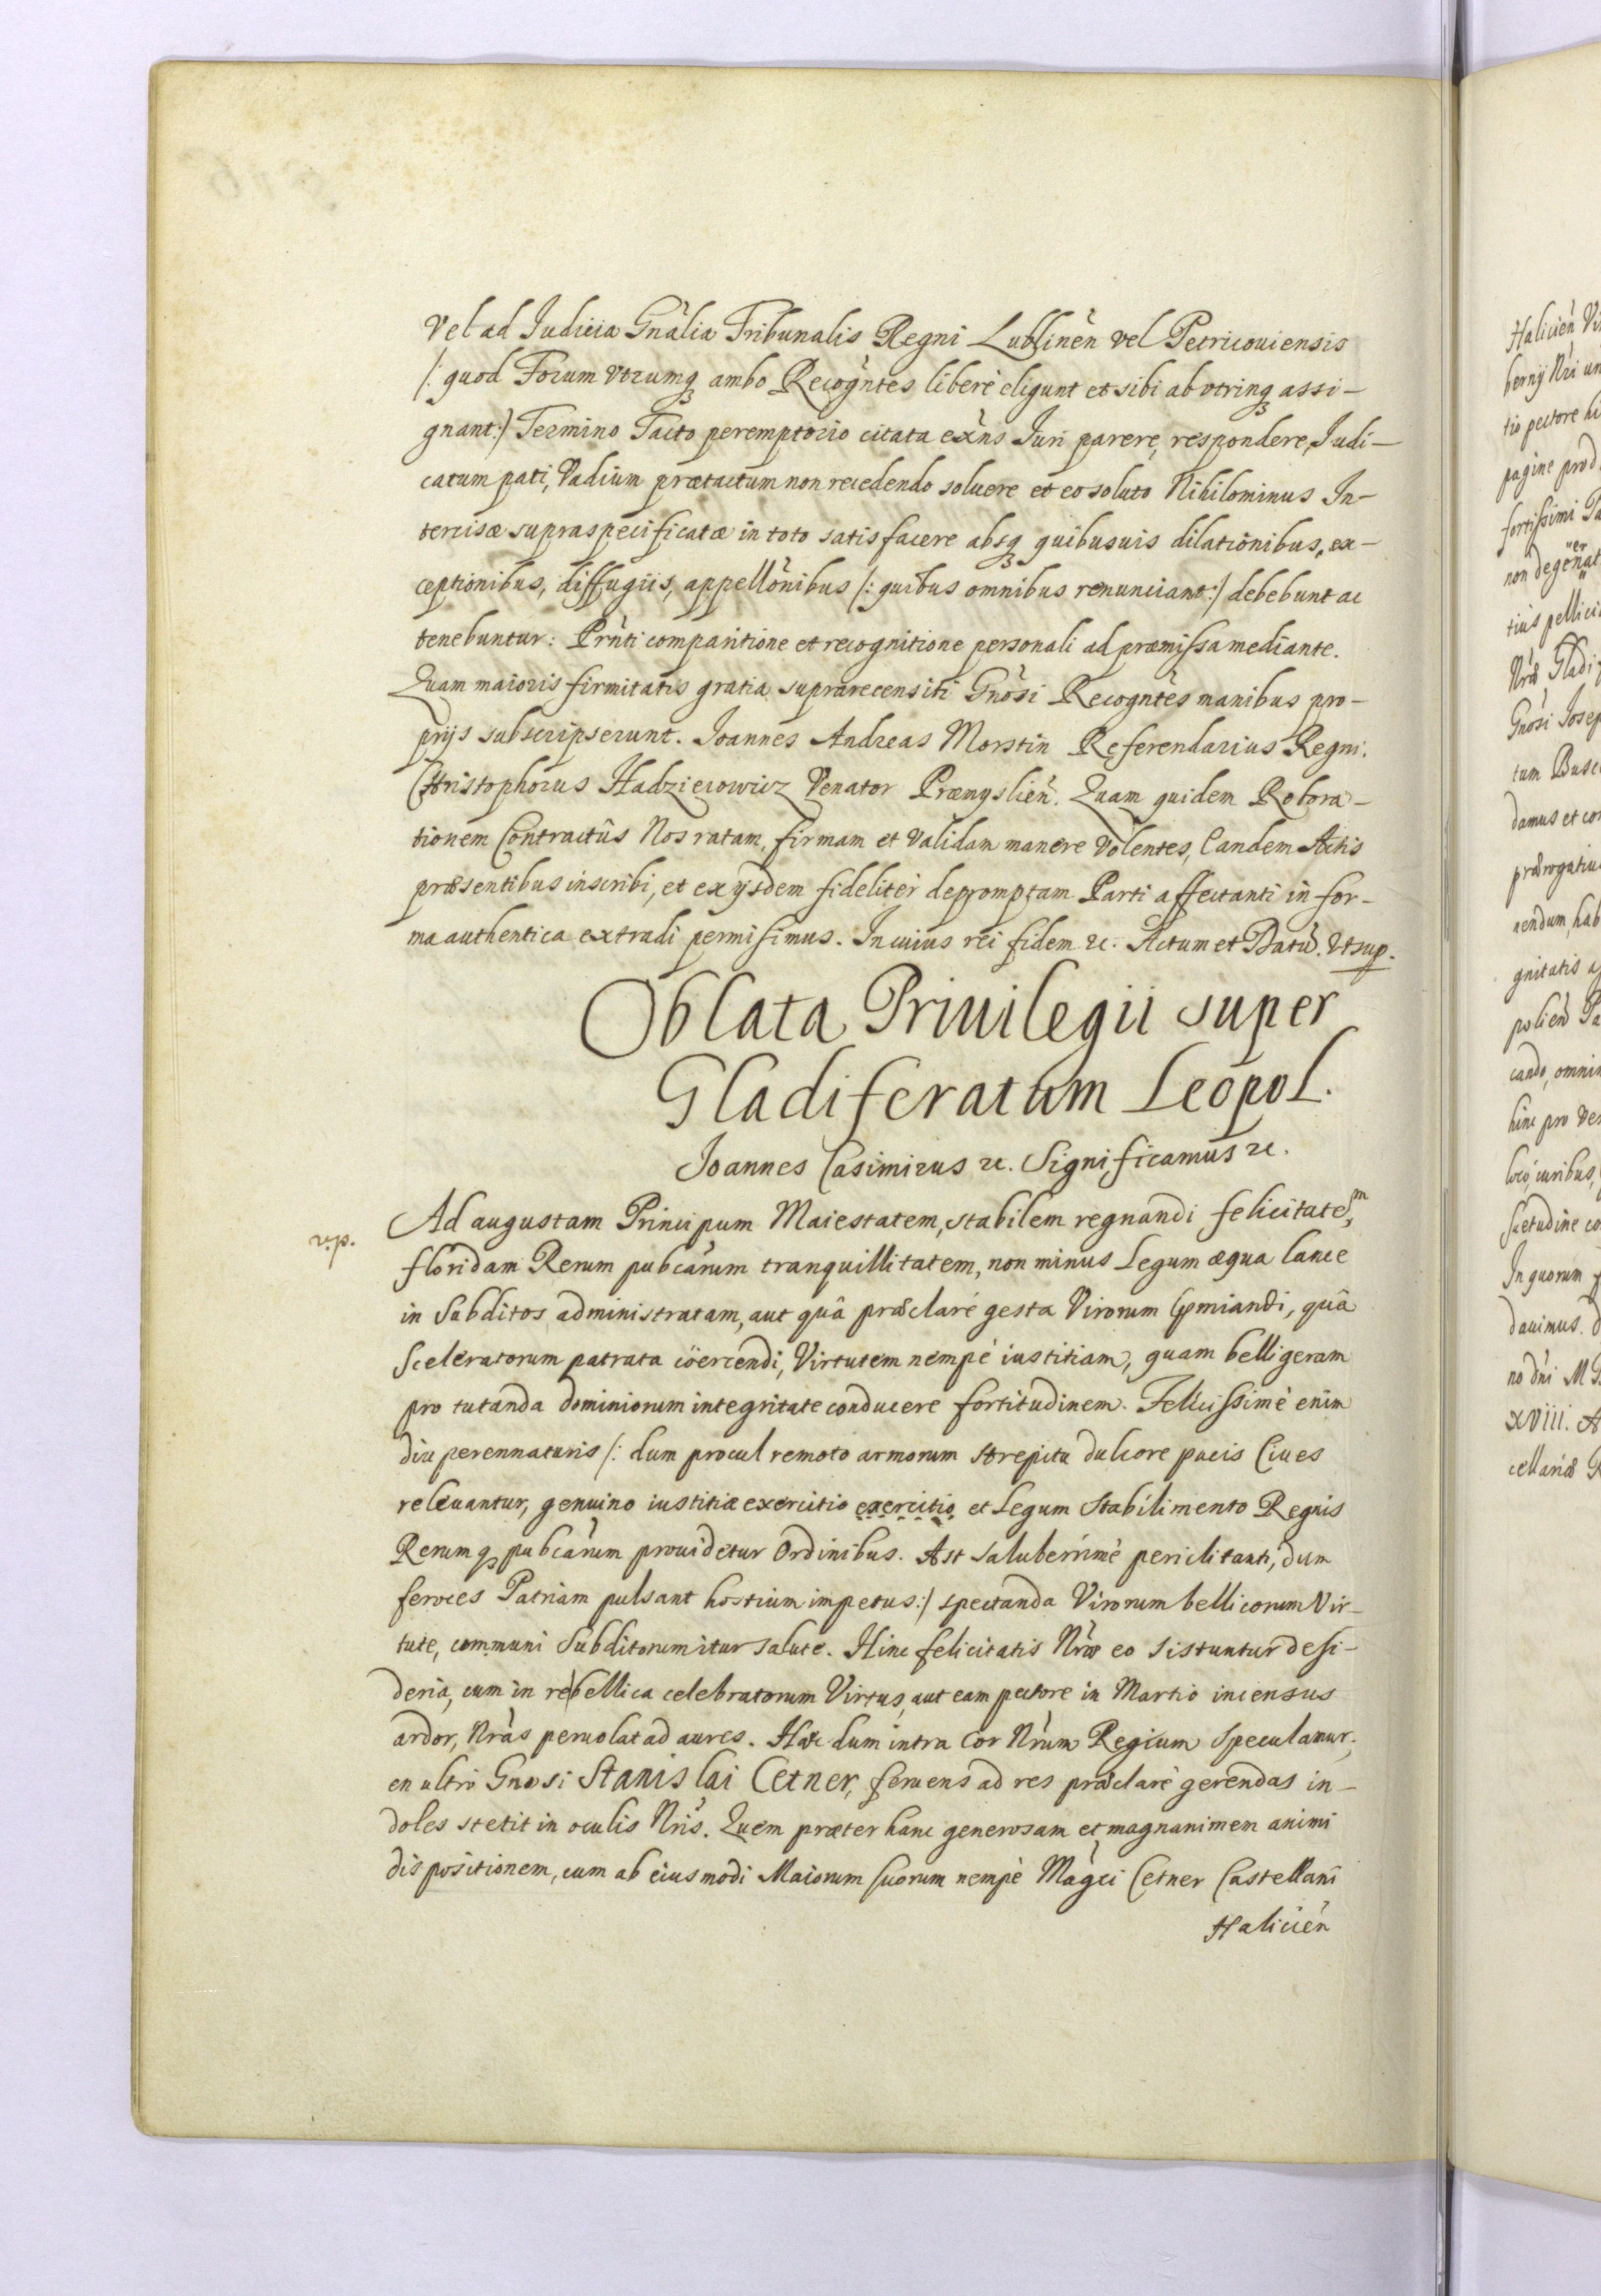 Vel ad Judicia Gnãlia Tribunalis Regni Lublinẽn vel Petricouiensis
/: quod Forum vtrumq; ambo Recogñtes liberè eligunt et sibi ab vtrinq; assi-
gnant:/ Termino Tacto peremptorio citata exñs Juri parere, respondere, Judi-
catum pati, Vadium prætactum non recedendo soluere et eo soluto Nihilominus In-
tercisæ supraspecificatæ in toto satisfacere absq; quibusuis dilationibus, ex-
ceptionibus, diffugiis, appellõnibus /: quibus omnibus renunciant:/ debebunt ac
tenebuntur: Prñti comparitione et recognitione personali ad præmissa mediante.
Quam maioris firmitatis gratia suprarecensiti Gnõsi Recogntẽs manibus pro-
prijs subscripserunt. Joannes Andreas Morstin Referendarius Regni.
Christophorus Hadziewicz Venator Præmyslien̄. Quam quidem Robora-
tionem Contractûs Nos ratam, firmam et validam manere Volentes, Eandem Actis
præsentibus inscribi, et ex ijsdem fideliter depromptam Parti affectanti in for-
ma authentica extradi permisimus. In cuius rei fidem &c. Actum et Datũ. Vt sup.
Oblata Priuilegii super
Gladiferatum Leopol.
Joannes Casimirus &c. Significamus &c.
Ad augustam Principum Maiestatem, stabilem regnandi felicitatem,
floridam Rerum pubcãrum tranquillitatem, non minus Legum æqua lance
in Subditos administratam, aut quâ præclarè gesta Virorum ꝓmiandi, quâ
Sceleratorum patrata coërcendi, Virtutem nempè iustitiam, quam belligeram
pro tutanda dominiorum integritate conducere fortitudinem. Felicissimè enim
diu perennaturis /: dum procul remoto armorum strepitu dulcore pacis Ciues
releuantur, genuino iustitiæ exercitio exercitio et Legum Stabilimento Regnis
Rerumq; pubcãrum prouidetur Ordinibus. Ast saluberrimè periclitanti, dum
feroces Patriam pulsant hostium impetus:/ spectanda Virorum bellicorum Vir-
tute, communi Subditorum itur salute. Hinc felicitatis Nrãe eo sistuntur desi-
deria, cum in re bellica celebratorum Virtus, aut eam pectore in Martio incensus
ardor, Nrãs peruolat ad aures. Hæc dum intra Cor Nrũm Regium speculamur,
en ultrò Gnosi Stanislai Cetner, feruens ad res præclarè gerendas in-
doles stetit in oculis Nris̃. Quem præter hanc generosam et magnanimem animi
dispositionem, cum ab eiusmodi Maiorum suorum nempè Mãgci Cetner Castellani
Haliciẽn